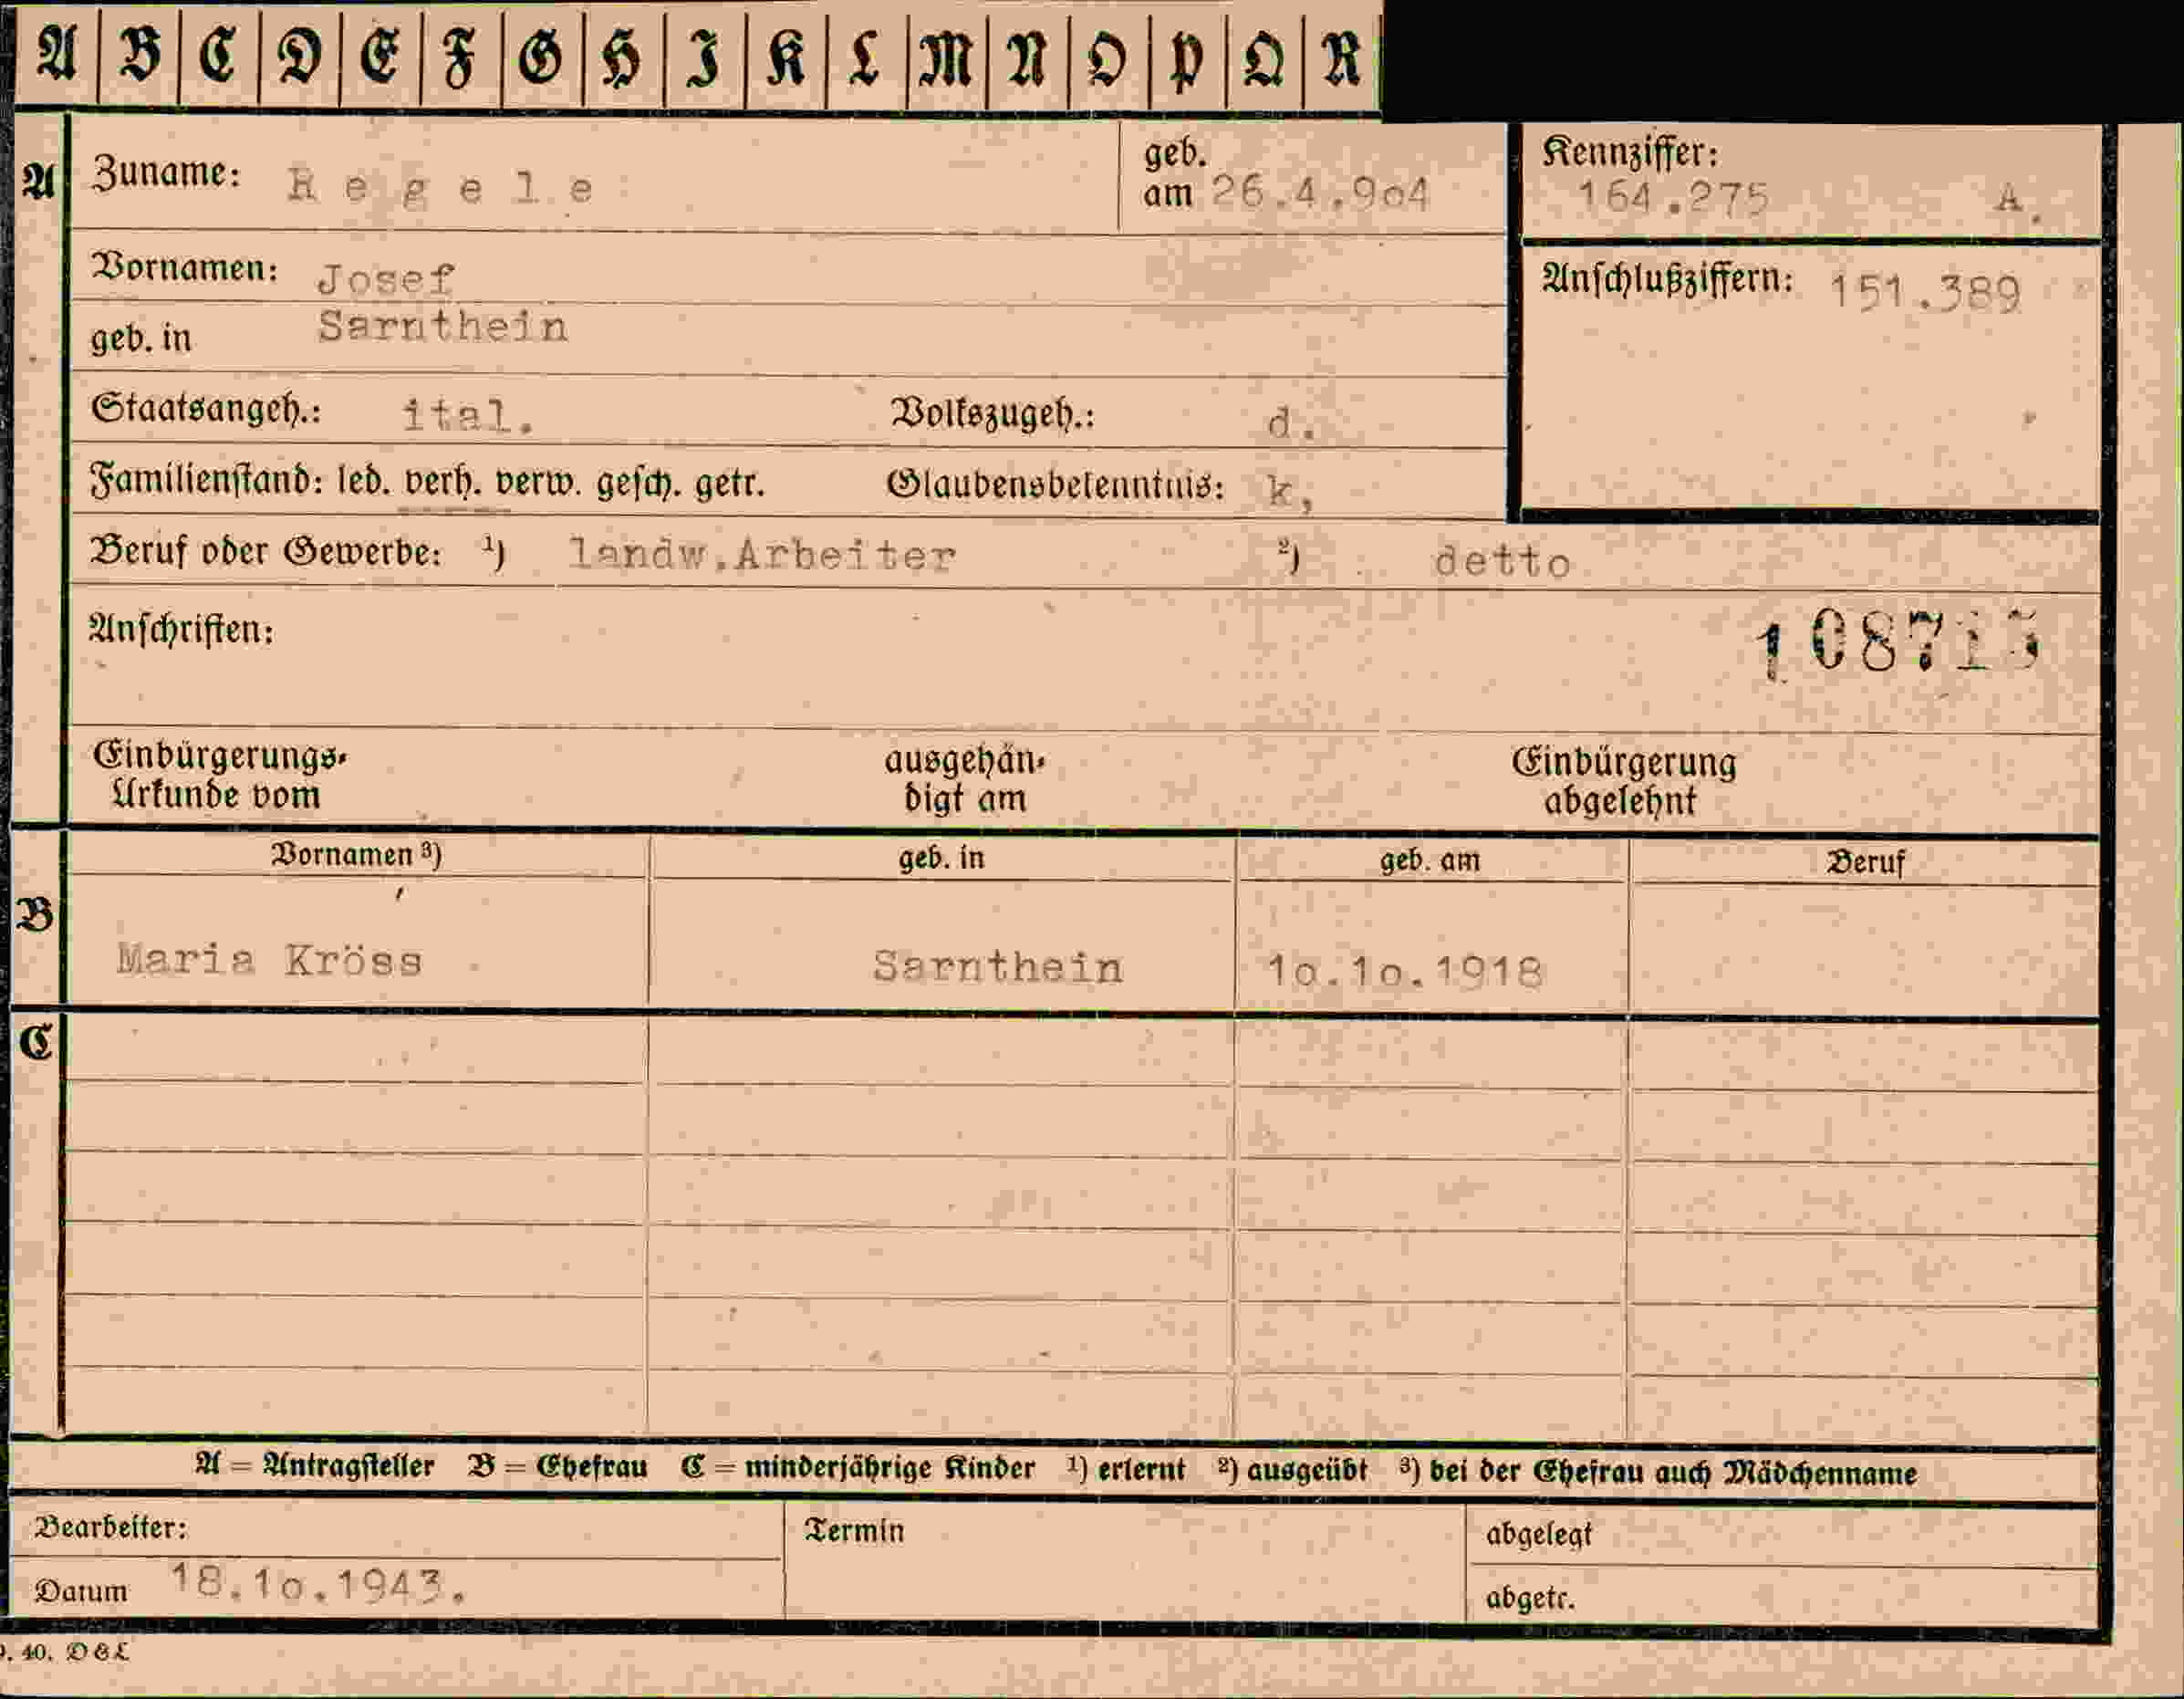 A B C D E F G H I K L M N O P Q R
A Zuname: Regele geb. am 26.4.9o4 Kennziffer: 164.275 A.
Vornamen: Josef Anschlußziffern: 151.389
geb. in Sarnthein
Staatsangeh.: ital. Volkszugeh.: d.
Familienstand: led. verh. verw. gesch. getr. Glaubensbekenntnis: k,
Beruf oder Gewerbe: ¹) landw.Arbeiter ²) detto
Anschriften:
Einbürgerungs-
Urkunde vom
ausgehän-
digt am
Einbürgerung
abgelehnt
Vornamen ³) geb. in geb. am Beruf
B
Maria Kröss Sarnthein 1o.1o.1918
C
A = Antragsteller B = Ehefrau C = minderjährige Kinder ¹) erlernt ²) ausgeübt ³) bei der Ehefrau auch Mädchenname
Bearbeiter: Termin abgelegt
Datum 18.1o.1943. abgetr.
40. DGL